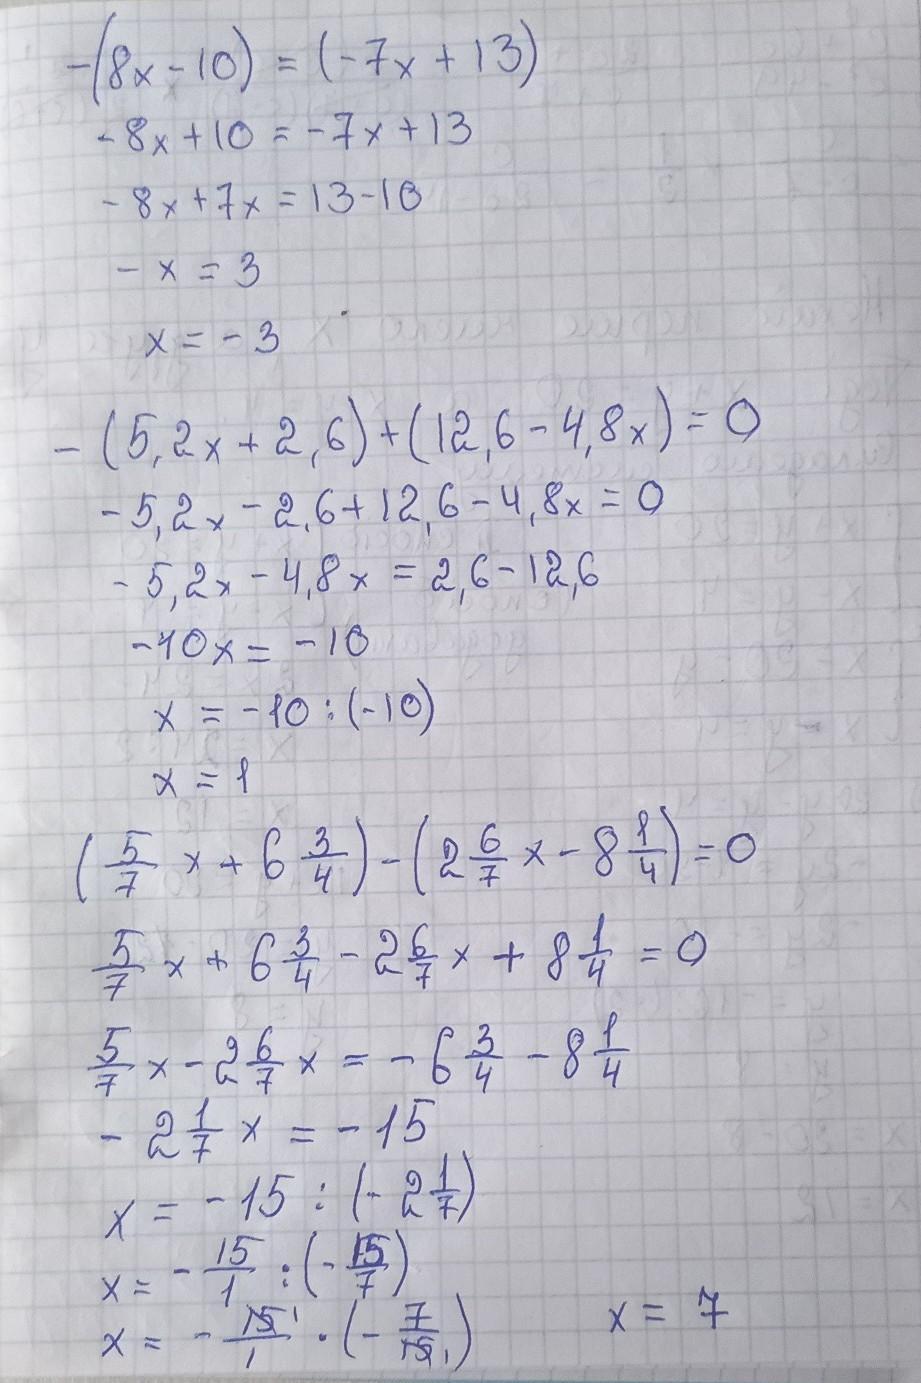 -(8x - 10) = (-7x + 13)
-8x + 10 = -7x + 13
-8x + 7x = 13 - 10
-x = 3
x = -3
-(5,2x + 2,6) + (12,6 - 4,8x) = 0
-5,2x - 2,6 + 12,6 - 4,8x = 0
-5,2x - 4,8x = 2,6 - 12,6
-10x = -10
x = -10 : (-10)
x = 1
(5/7 x + 6 3/4) - (2 6/7 x - 8 1/4) = 0
5/7 x + 6 3/4 - 2 6/7 x + 8 1/4 = 0
5/7 x - 2 6/7 x = -6 3/4 - 8 1/4
-2 1/7 x = -15
x = -15 : (-2 1/7)
x = -15/1 : (-15/7)
x = -15/1 · (-7/15) x = 7